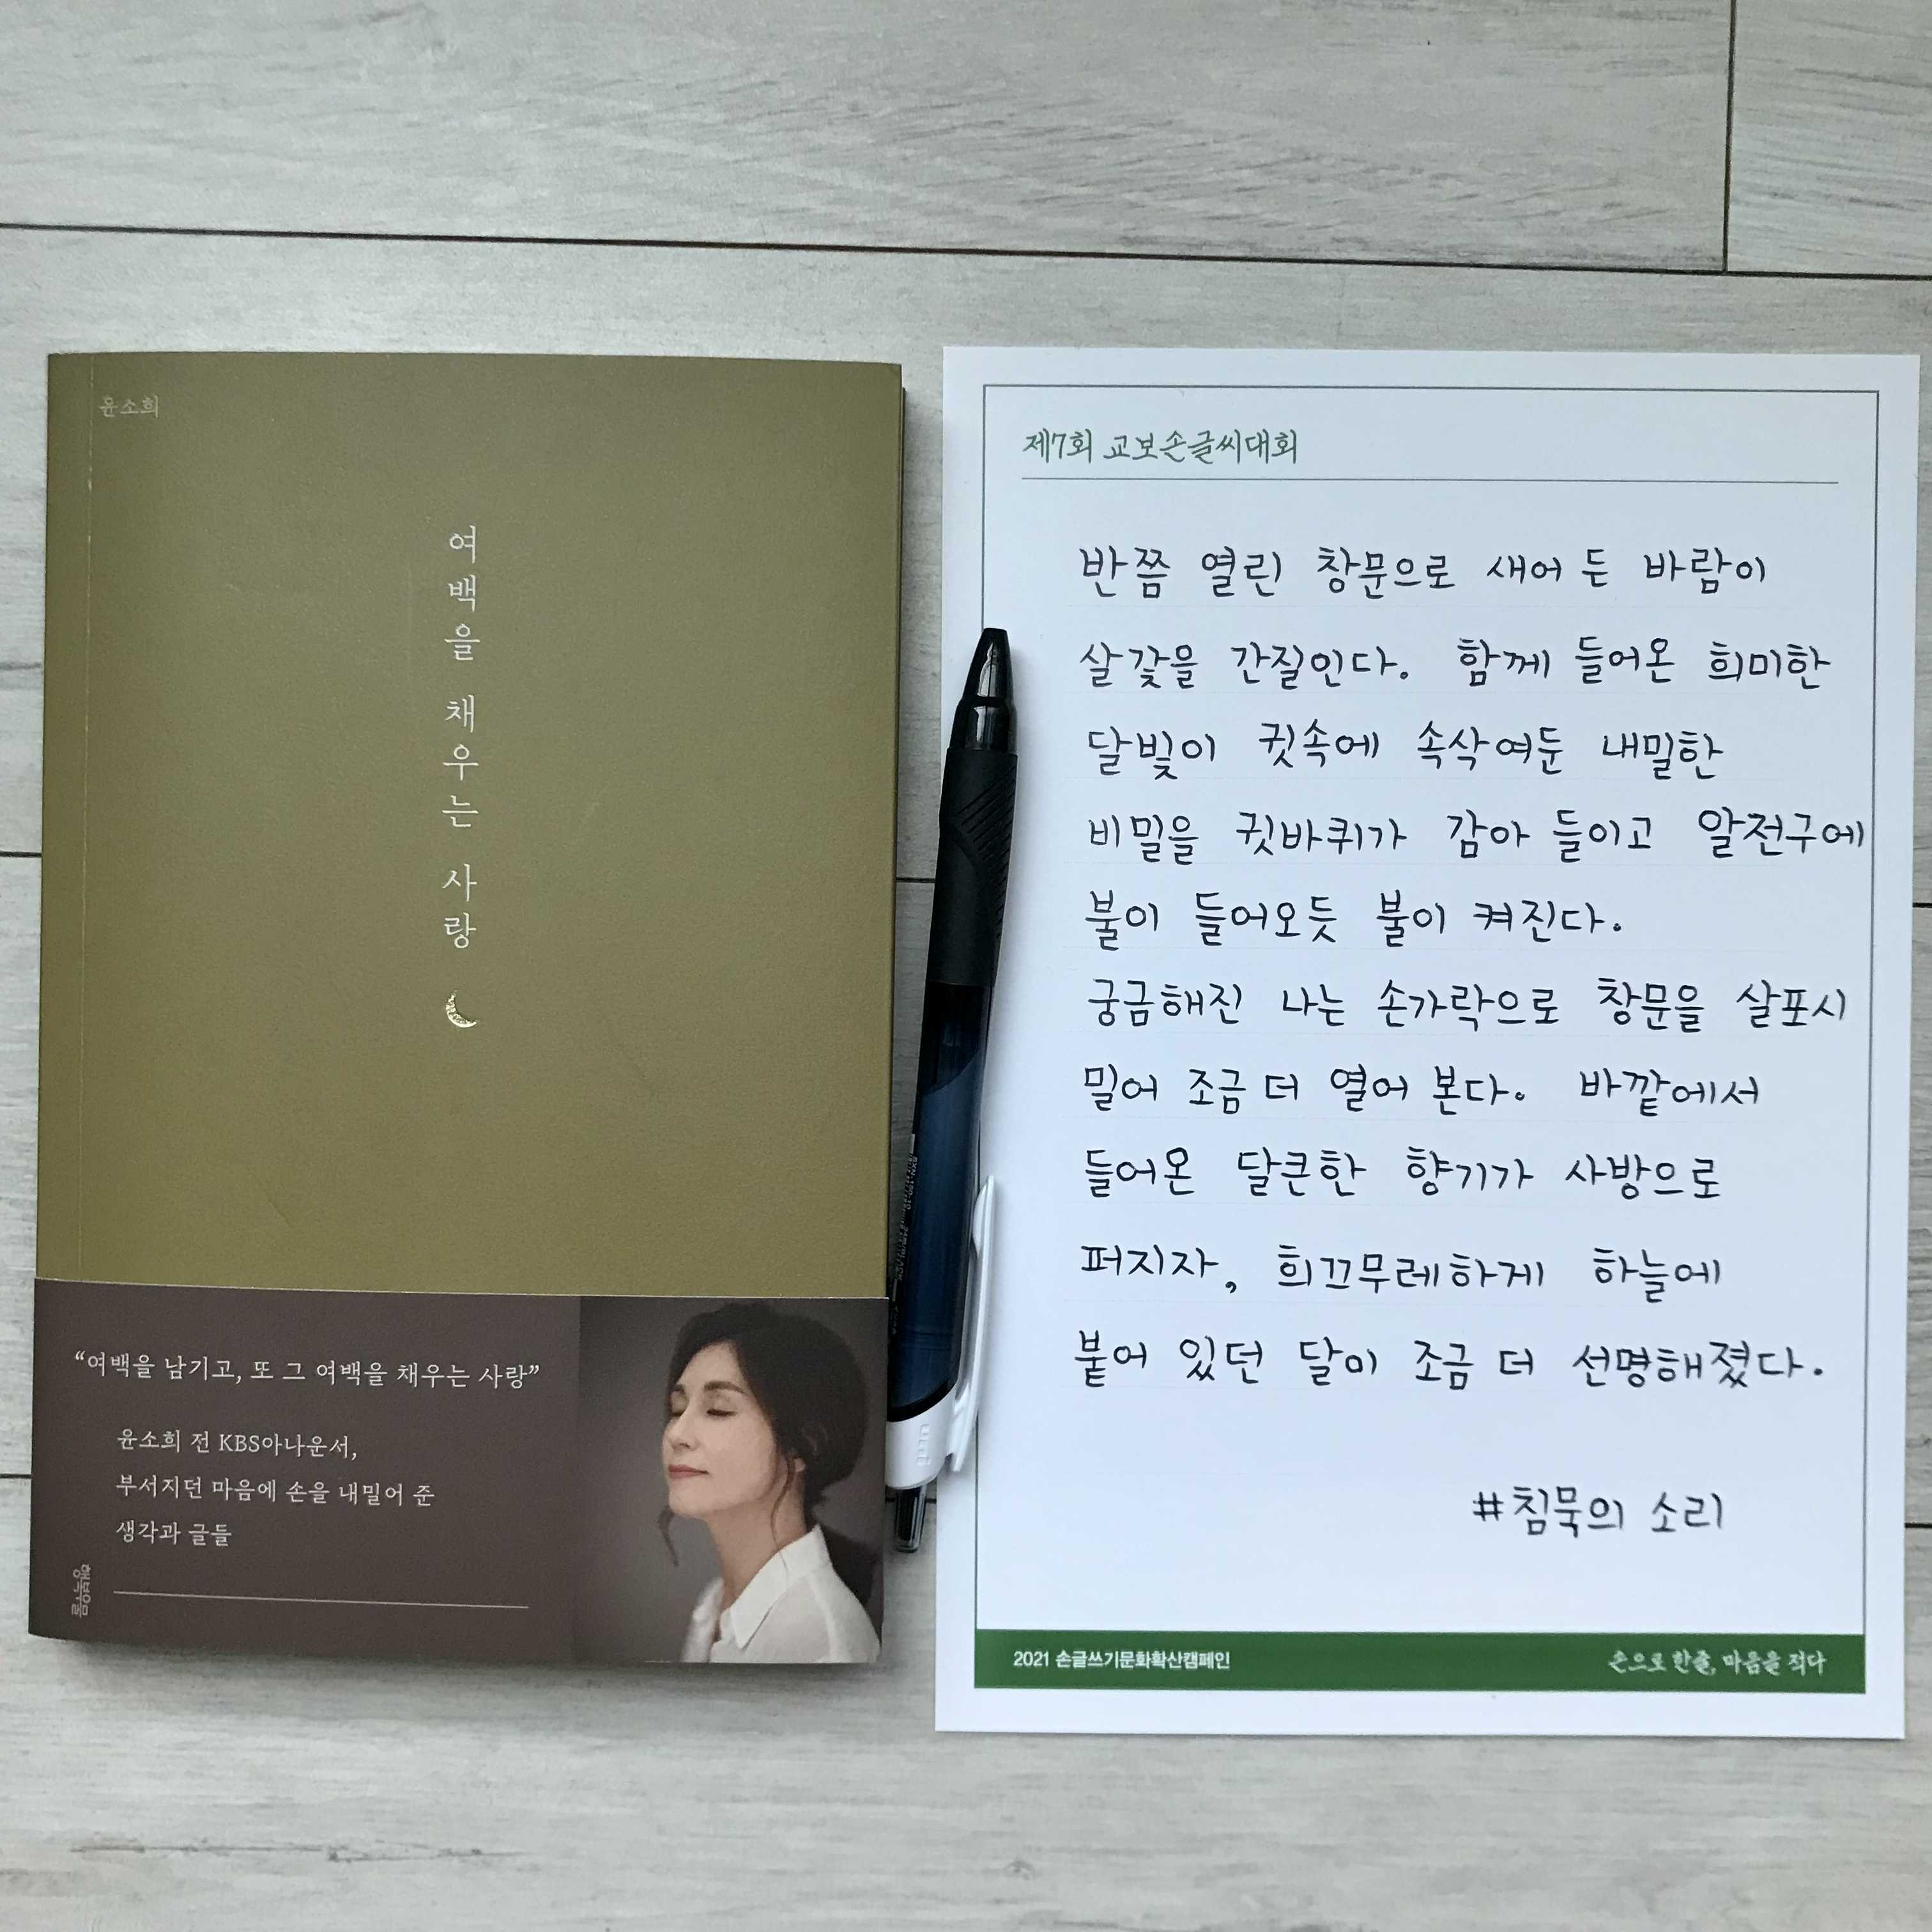 윤소희
여백을 채우는 사랑
“여백을 남기고, 또 그 여백을 채우는 사랑”
윤소희 전 KBS아나운서,
부서지던 마음에 손을 내밀어 준
생각과 글들
행복우물
uni
제7회 교보손글씨대회
반쯤 열린 창문으로 새어 든 바람이
살갗을 간질인다. 함께 들어온 희미한
달빛이 귓속에 속삭여둔 내밀한
비밀을 귓바퀴가 감아 들이고 알전구에
불이 들어오듯 불이 켜진다.
궁금해진 나는 손가락으로 창문을 살포시
밀어 조금 더 열어 본다. 바깥에서
들어온 달큰한 향기가 사방으로
퍼지자, 희끄무레하게 하늘에
붙어 있던 달이 조금 더 선명해졌다.
#침묵의 소리
2021 손글쓰기문화확산캠페인
손으로 한줄, 마음을 적다